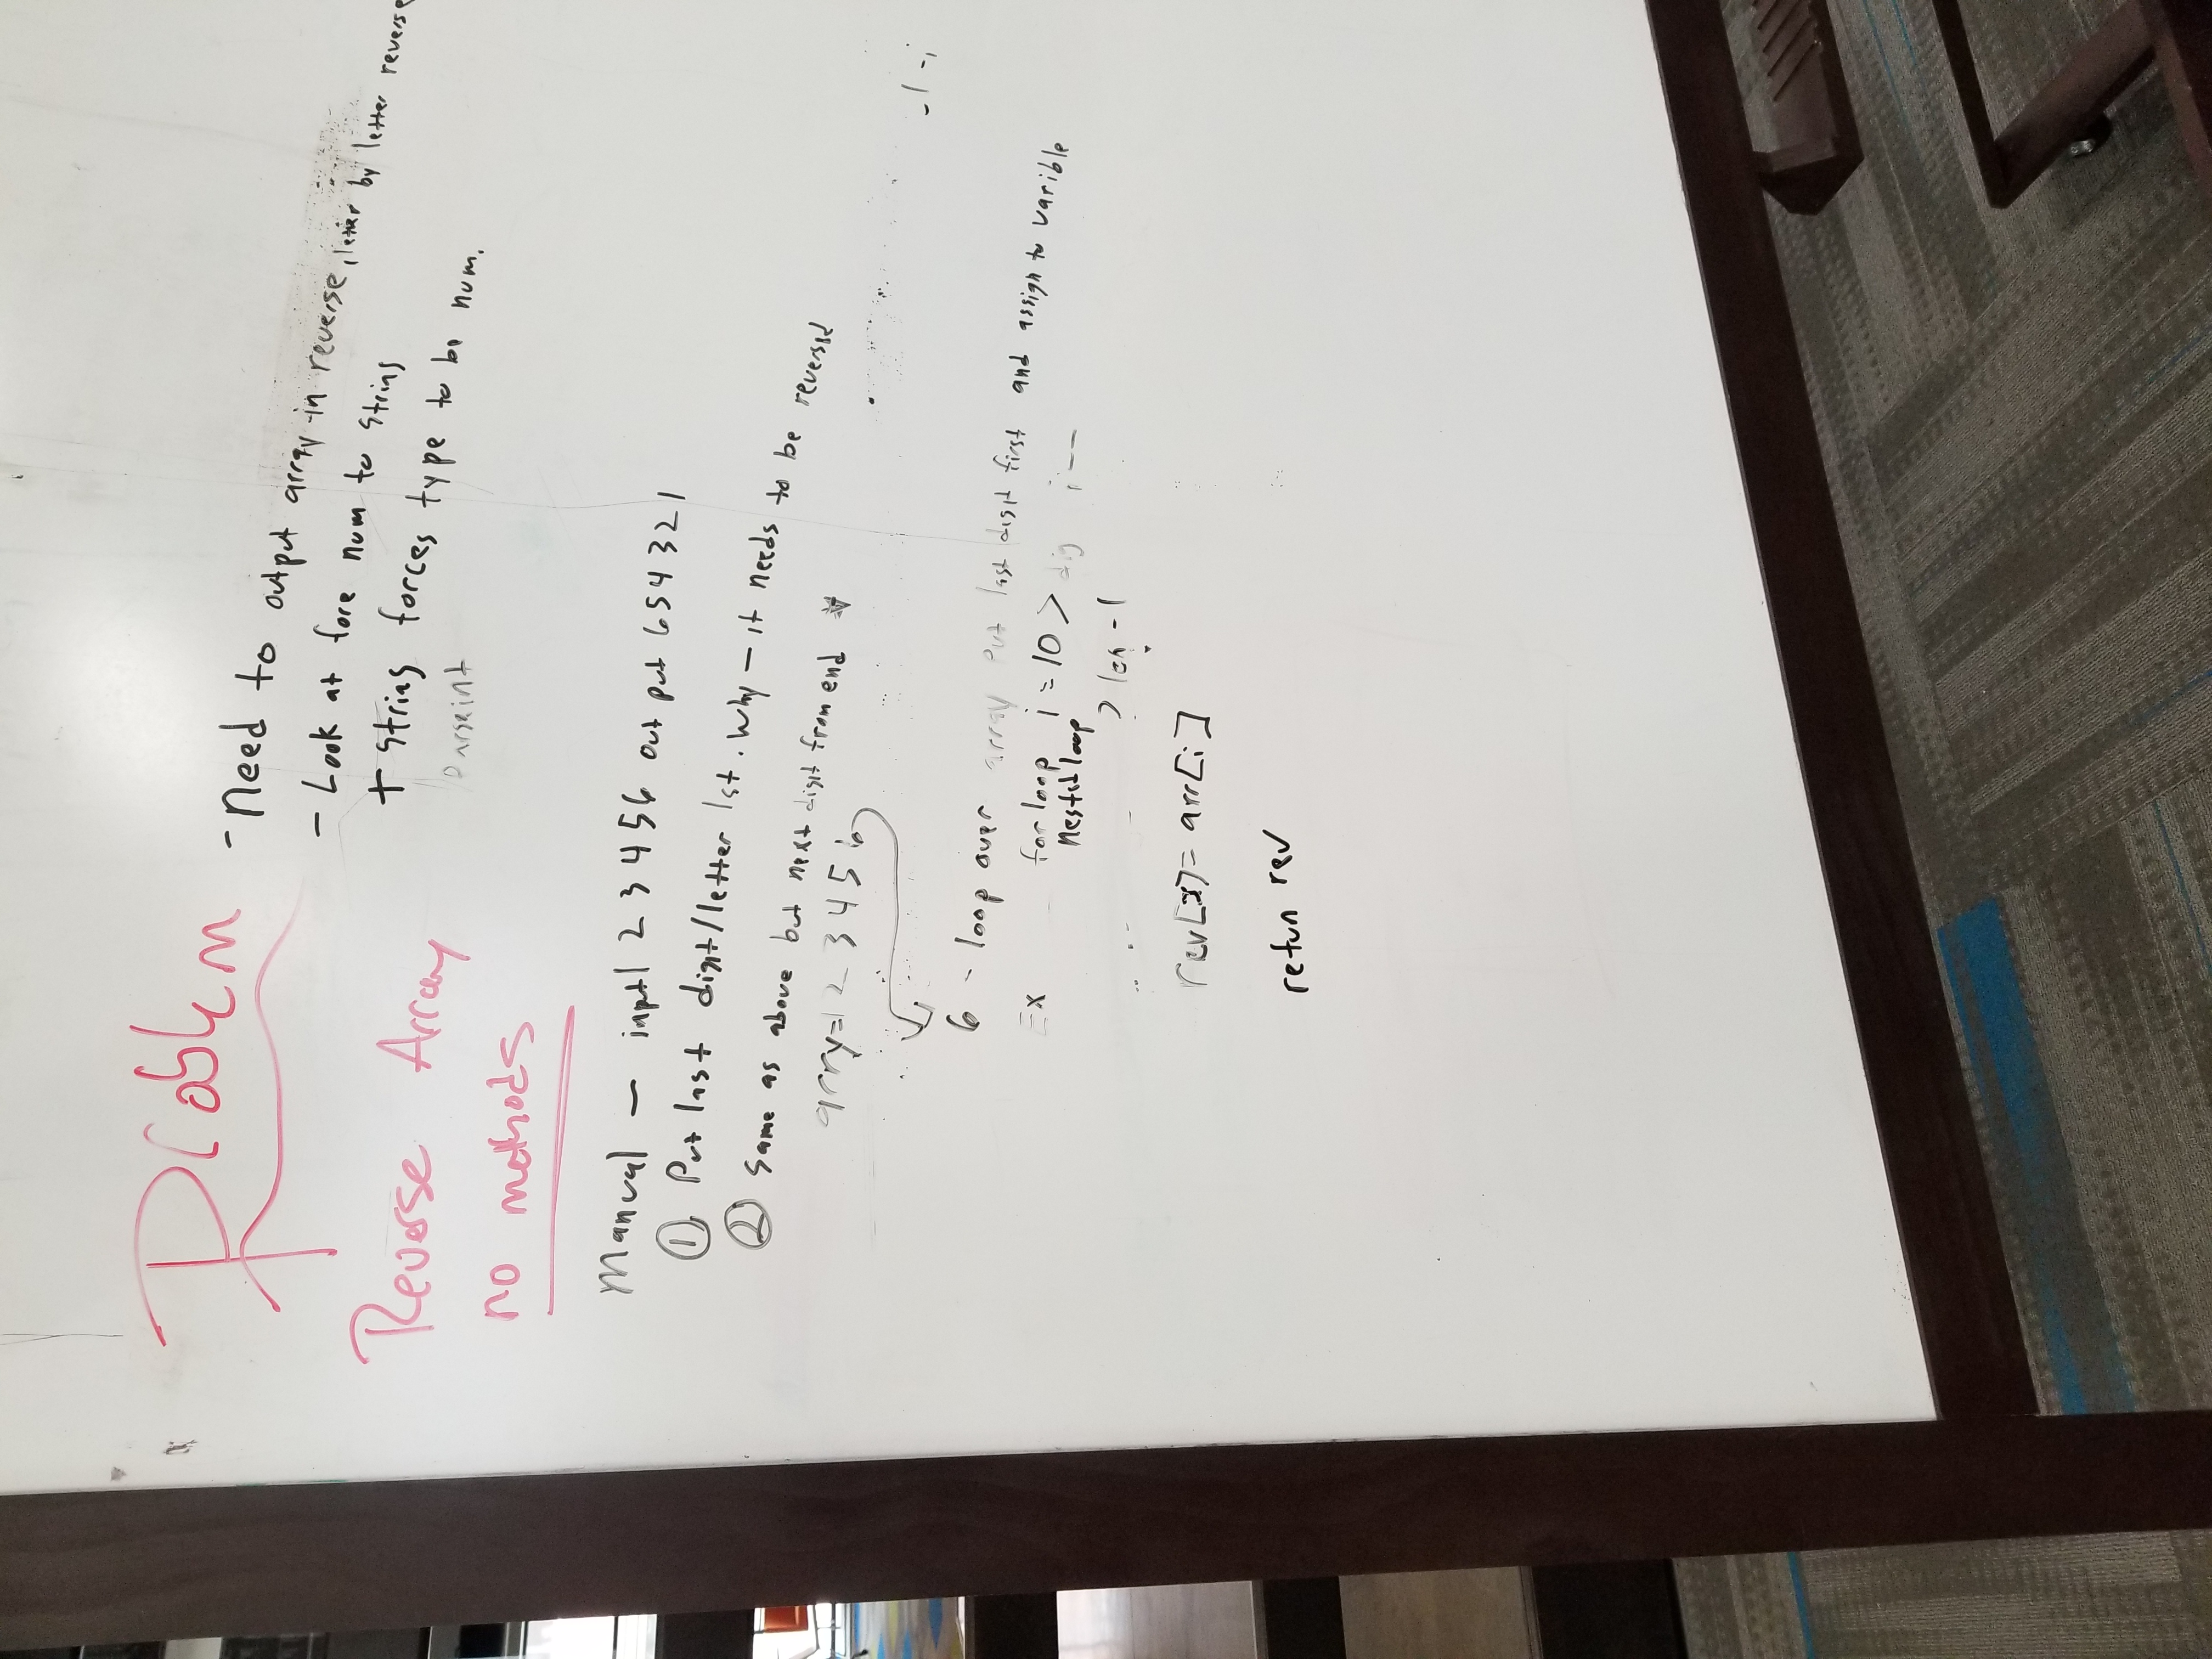 Problem
- need to output array in reverse, letter by letter reverse
- Look at fore num to string
+ string forces type to be num.
Parseint
Reverse Array
no methods
Manual - input 1 2 3 4 5 6 out put 6 5 4 3 2 1
① Put last digit/letter 1st. Why - it needs to be reversed
② Same as above but next digit from end
arry= 1 2 3 4 5 6
-1 -i
6 - loop over array put last digit first and assign to varible
Ex for loop i = 10 > dig i--
Nested loop
> len -1
rev[x]= arr[i]
retun rev